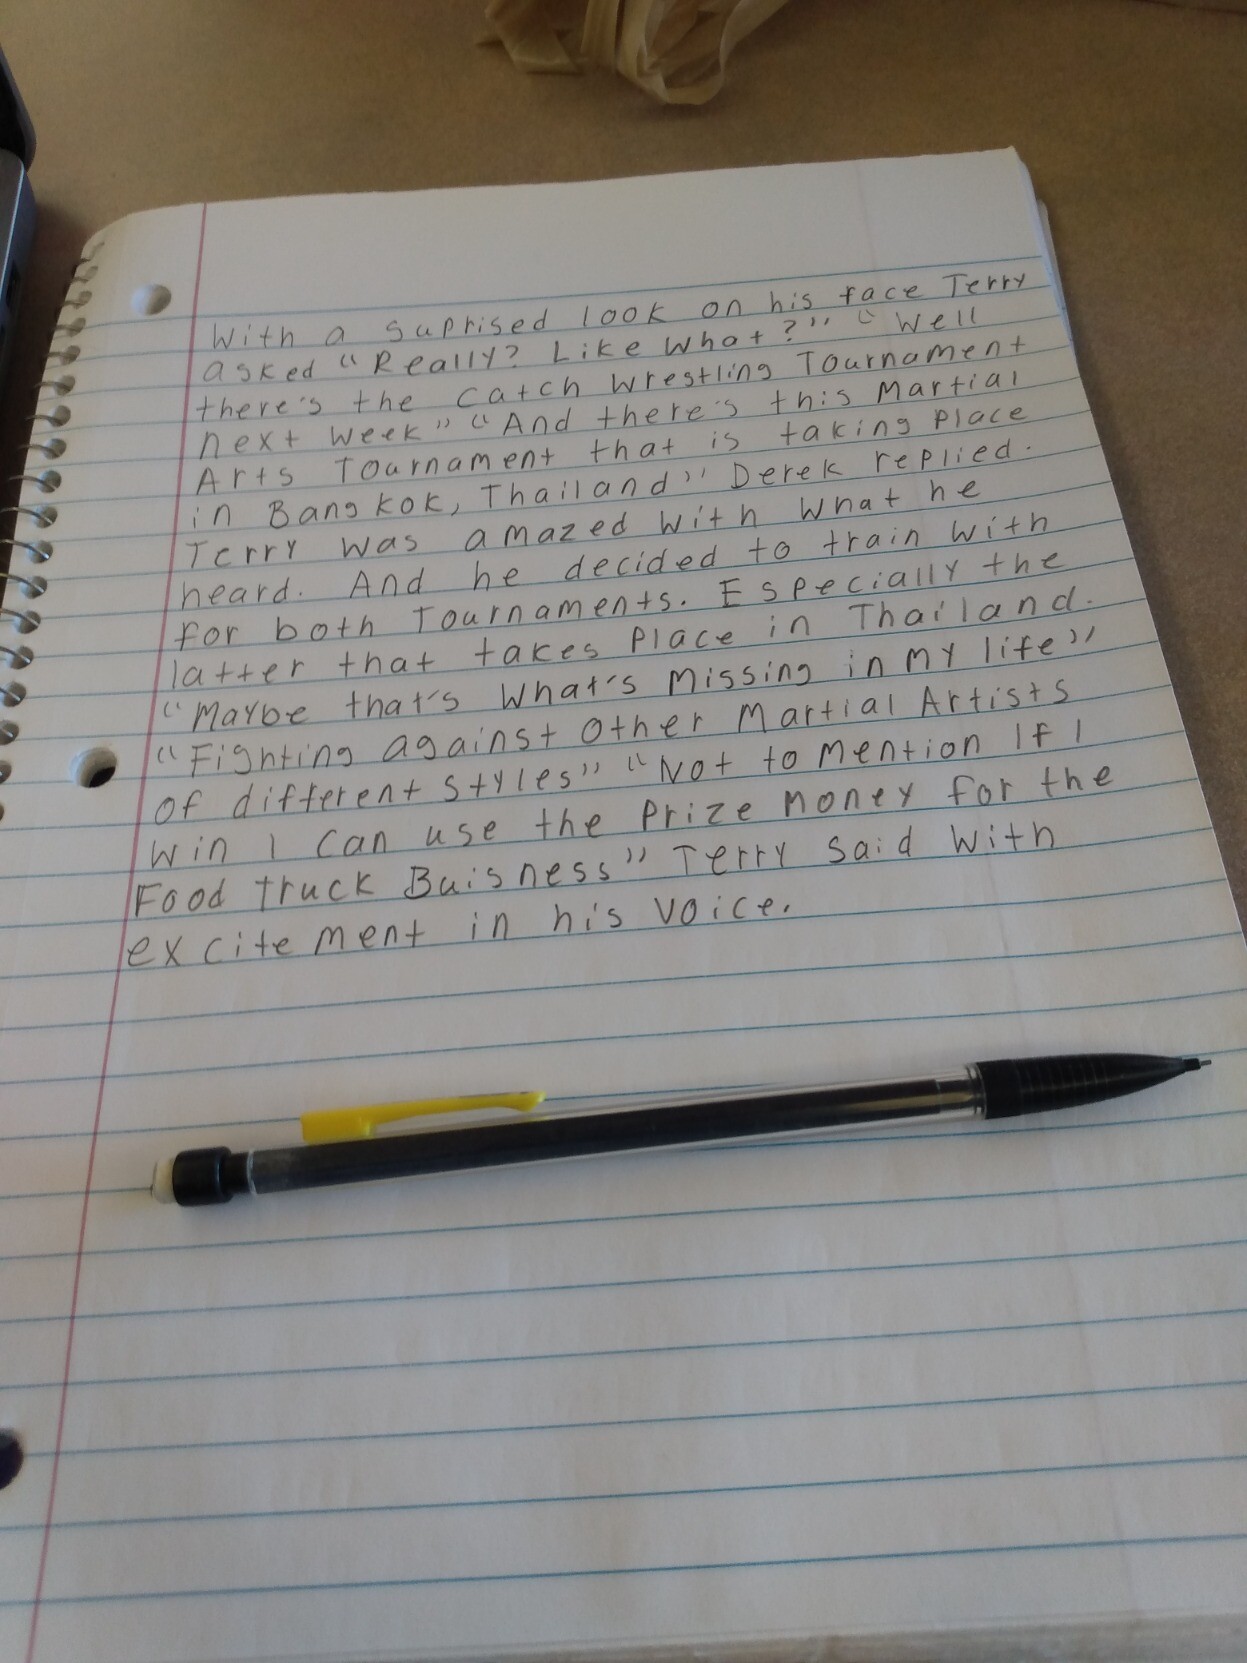 With a suprised look on his face Terry
asked "Really? Like what?" "Well
there's the catch wrestling Tournament
next week" "And there's this Martial
Arts Tournament that is taking place
in Bangkok, Thailand" Derek replied.
Terry was amazed with what he
heard. And he decided to train with
for both Tournaments. Especially the
latter that takes place in Thailand.
"Maybe that's what's missing in my life"
"Fighting against other Martial Artists
of different styles" "Not to mention If I
win I can use the prize money for the
Food truck Buisness" Terry said with
excitement in his voice.